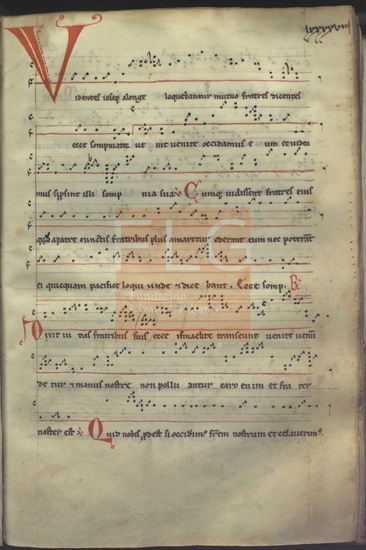 lxxxxviii
Videntes iosep alonge loquebantur mutuo fratres dicentes
ecce sompniator uenit uenite occidamus eum et uidea
mus si p̄sint illi sompnia sua ℣ Cumq; uidissent fratres eius
qd̄ a patre cunctis fratribus plus amaretur oderant eum nec poterant
ei quicquam pacifice loqui unde & dicebant. Ecce somp. ℟
Dixit iudas fratribus suis ecce ismaelite transeunt uenite uenū
detur & manus nostre non polluantur caro enim et frater
noster est ℣ Quid nobis ꝓdest si occidimꝰ fr̄em nostrum et celauerimꝰ.